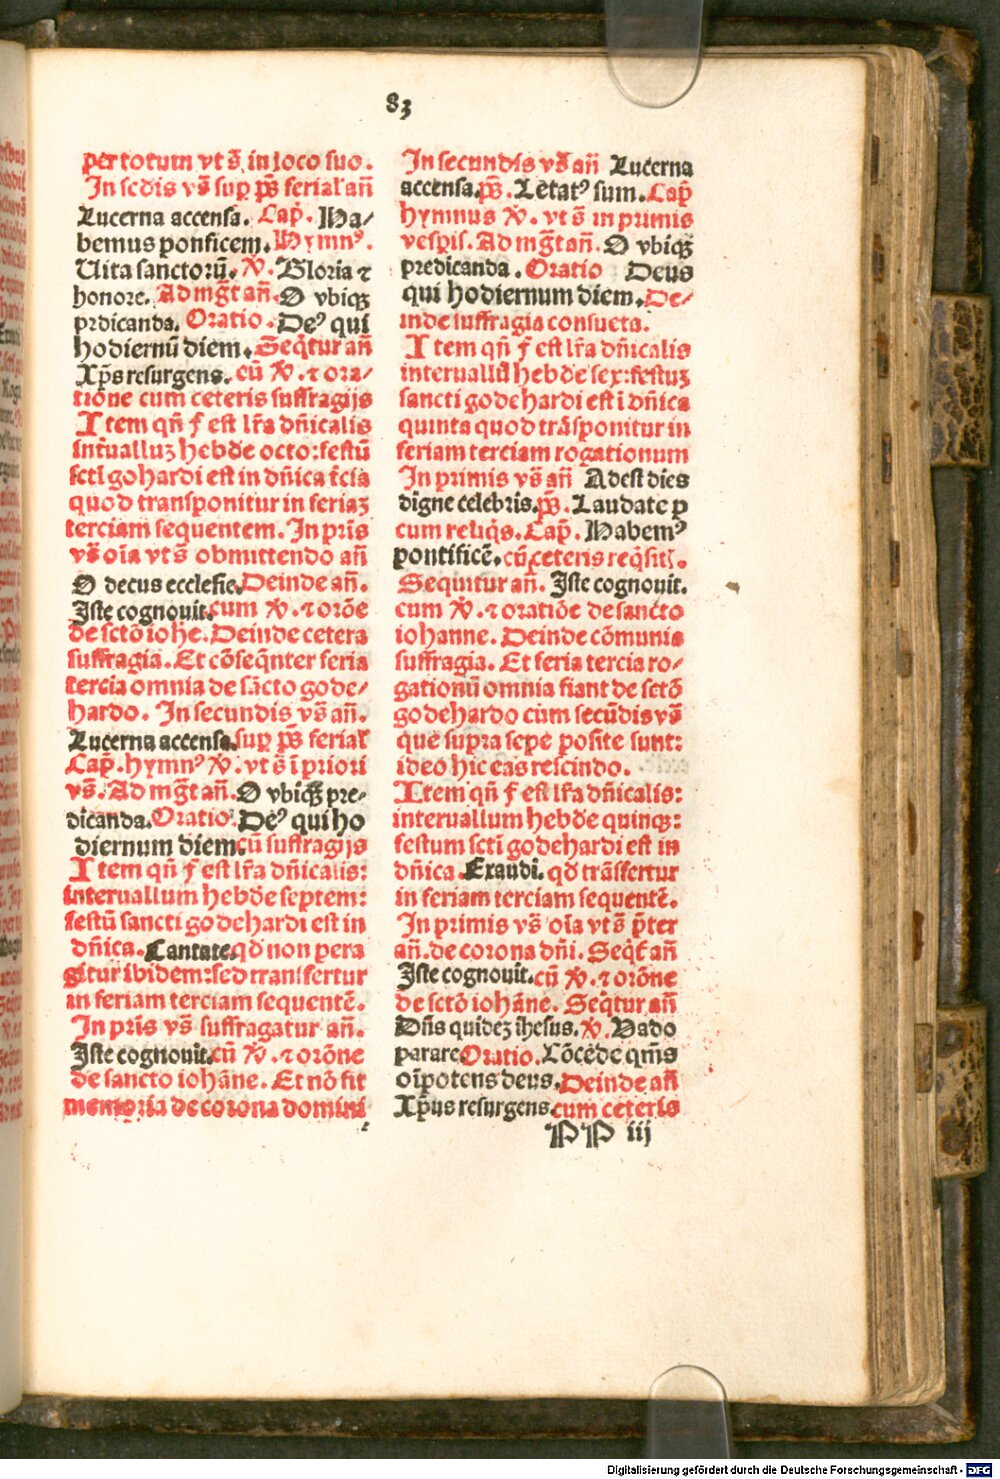 83
per totum vt s̄. in loco suo.
In scd̄is vs̄ sup̲ ps̄ serial' an̄
Lucerna accensa. Cap̄. Ha/
bemus ponficem. Hymnꝰ.
Uita sanctorū. ꝟ. Gloria ⁊
honore. Ad mg̅t an̄. O vbiqꝫ
prdicanda. Oratio. Deꝰ qui
hodiernū diem. Seq̄tur an̄
Xp̄s resurgens. cū ꝟ. ⁊ ora/
tiōne cum ceteris suffragijs
Item qn̄ f est lr̄a dn̄icalis
intualluꝫ hebd̄e octo: festū
scti gohardi est in dn̄ica t̄cia
quod transponitur in feriaꝫ
terciam sequentem. In prīs
vs̄ oīa vt s̄ obmittendo an̄
O decus ecclesie. Deinde an̄.
Iste cognouit. cum ꝟ. ⁊ orōe
de sctō iohe. Deinde cetera
suffragia. Et cōseqn̄ter feria
tercia omnia de sācto gode/
hardo. In secundis vs̄ an̄.
Lucerna accensa. sup̲ ps̄ ferial'
Cap̄. hymnꝰ ꝟ. vt s̄ ī priori
vs̄. Ad mg̅t an̄. O vbiqꝫ pre-
dicanda. Oratio. Deꝰ qui ho
diernum diem. cū suffragijs
Item qn̄ f est lr̄a dn̄icalis:
interuallum hebd̄e septem:
festū sancti godehardi est in
dn̄ica. Cantate. qd̄ non pera
gitur ibidem: sed transfertur
in feriam terciam sequentē.
In prīs vs̄ suffragatur an̄.
Iste cognouit. cū ꝟ. ⁊ orōne
de sancto iohāne. Et nō fit
memoria de corona domini
In secundis vs̄ an̄ Lucerna
accensa. ps̄. Letatꝰ sum. Cap̄
hymnus ꝟ. vt s̄ in primis
vespis. Ad mg̅t an̄. O vbiqꝫ
predicanda. Oratio Deus
qui hodiernum diem. De/
inde suffragia consueta.
Item qn̄ f est lr̄a dn̄icalis
interuallū hebd̄e sex: festuꝫ
sancti godehardi est ī dn̄ica
quinta quod trāsponitur in
feriam terciam rogationum
In primis vs̄ an̄ Adest dies
digne celebris. ps̄. Laudate p
cum reliqs̄. Cap̄. Habemꝰ
pontificē. cū ceteris reqsitʒ.
Sequitur an̄. Iste cognouit.
cum ꝟ. ⁊ oratiōe de sancto
iohanne. Deinde cōmunia
suffragia. Et feria tercia ro/
gationū omnia fiant de sctō
godehardo cum secūdis vs̄
que supra sepe posite sunt:
ideo hic eas rescindo.
Item qn̄ f est lr̄a dn̄icalis:
interuallum hebd̄e quinqꝫ:
festum scti godehardi est in
dn̄ica. Exaudi. qd̄ trāsfertur
in feriam terciam sequentē.
In primis vs̄ oīa vt s̄ p̄ter
an̄. de corona dn̄i. Seqt̄ an̄
Iste cognouit. cū ꝟ. ⁊ orōne
de sctō iohāne. Seq̄tur an̄
Dn̄s quideꝫ ihesus. ꝟ. Vado
parare. Oratio. Cōcede qms̄
oīpotens deus. Deinde an̄
Xp̄us resurgens. cum ceteris
PP iij
Digitalisierung gefördert durch die Deutsche Forschungsgemeinschaft - DFG